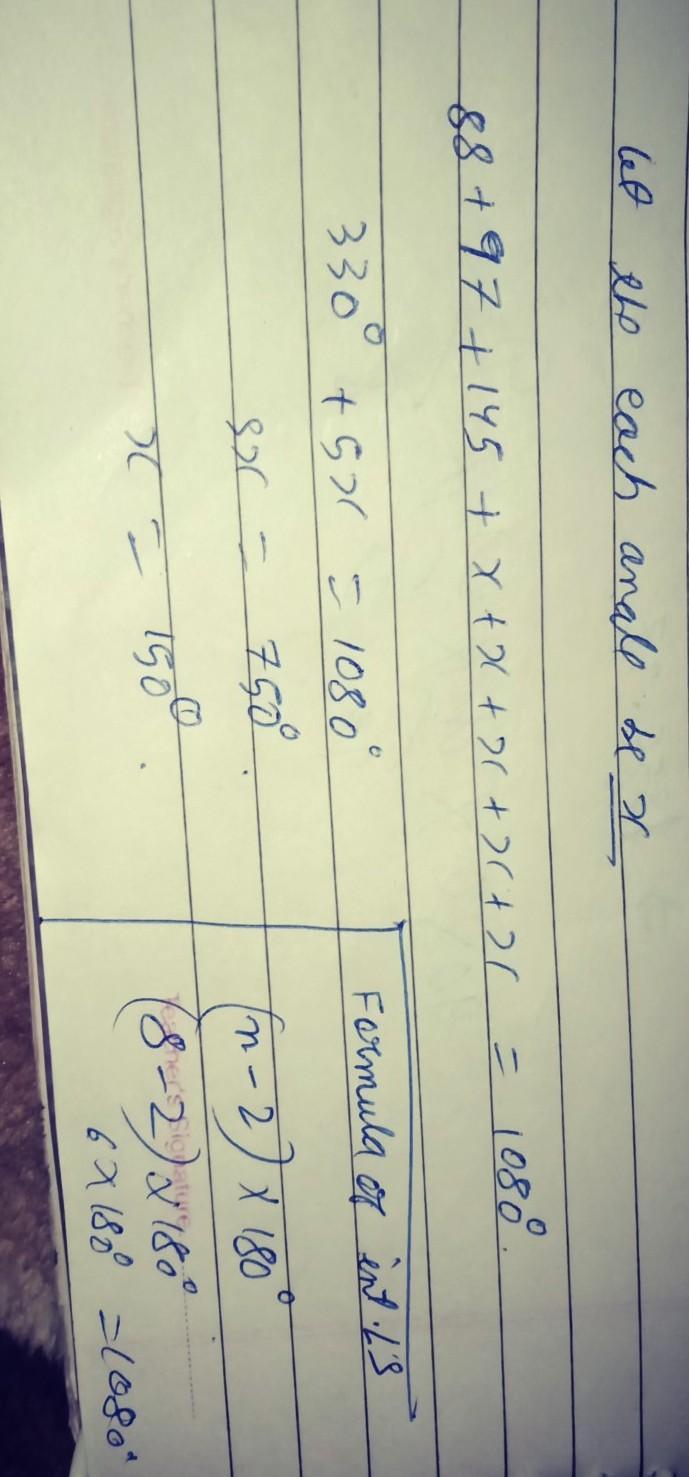 let the each angle be x
88 + 97 + 145 + x + x + x + x + x = 1080°.
330° + 5x = 1080°
5x = 750°.
x = 150°.
Formula of int. ∠s
(n - 2) x 180°
(8 - 2) x 180°
Teacher's Signature
6 x 180° = 1080°